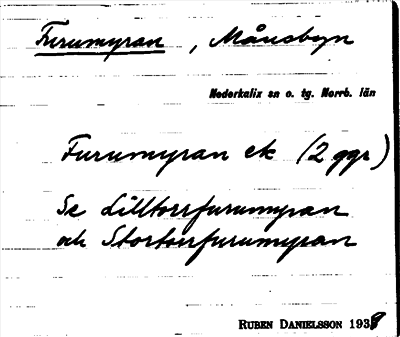 Furumyran, Månsbyn
Nederkalix sn o. tg. Norrb. län
Furumyran ek (2 ggr)
Se Lilltorrfurumyran
och Stortorrfurumyran
RUBEN DANIELSSON 1938